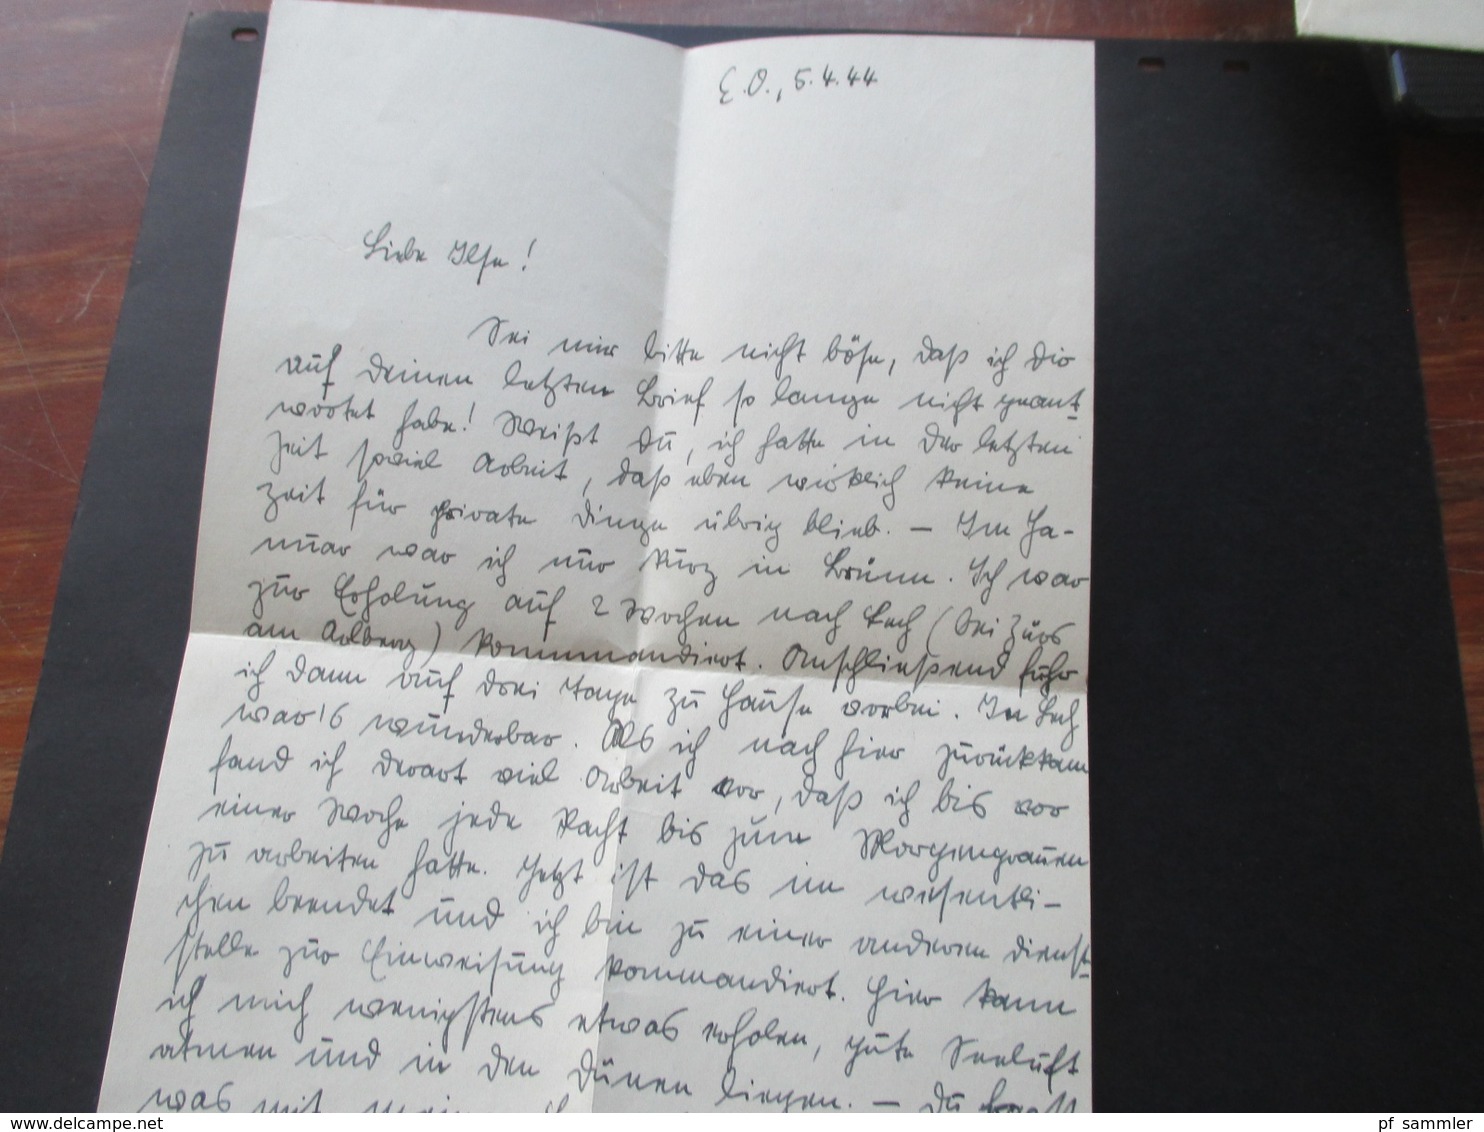 E.O., 5.4.44
Liebe Ilse!
Sei mir bitte nicht böse, daß ich dir
auf deinen letzten Brief so lange nicht geant-
wortet habe! Weißt du, ich hatte in der letzten
Zeit soviel Arbeit, daß eben wirklich keine
Zeit für private Dinge übrig blieb. — Im Ja-
nuar war ich nur kurz in Brünn. Ich war
zur Erholung auf 2 Wochen nach Lech (bei Zürs
am Arlberg) kommandiert. Anschließend fuhr
ich dann auf drei Tage zu Hause vorbei. In Lech
war's wunderbar. Als ich nach hier zurückkam
fand ich derart viel Arbeit vor, daß ich bis vor
einer Woche jede Nacht bis zum Morgengrauen
zu arbeiten hatte. Jetzt ist das im wesentli-
chen beendet und ich bin zu einer anderen Dienst-
stelle zur Einweisung kommandiert. Hier kann
ich mich wenigstens etwas erholen, gute Seeluft
atmen und in den Dünen liegen. — Du
was mit
pf_sammler